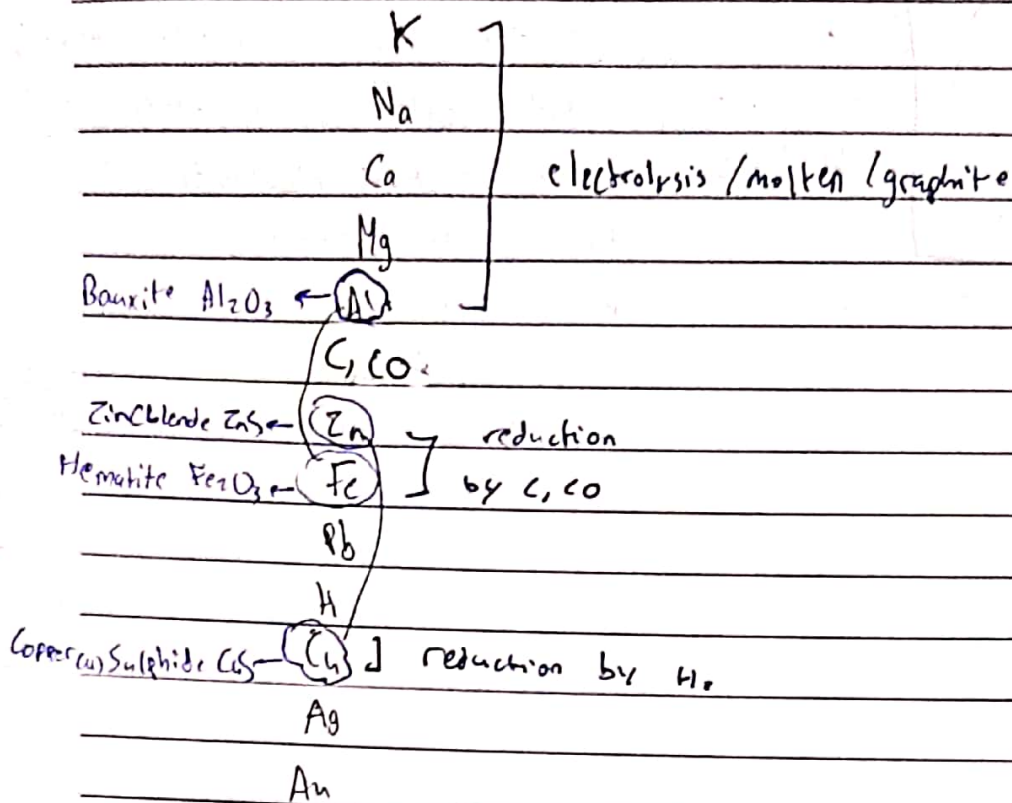 K
Na
Ca electrolysis /molten /graphite
Mg
Bauxite Al2O3 ← Al
C, CO
Zincblende ZnS ← Zn reduction
Hematite Fe2O3 ← Fe by C, CO
Pb
H
Copper(II) Sulphide CuS Cu ] reduction by H.
Ag
Au